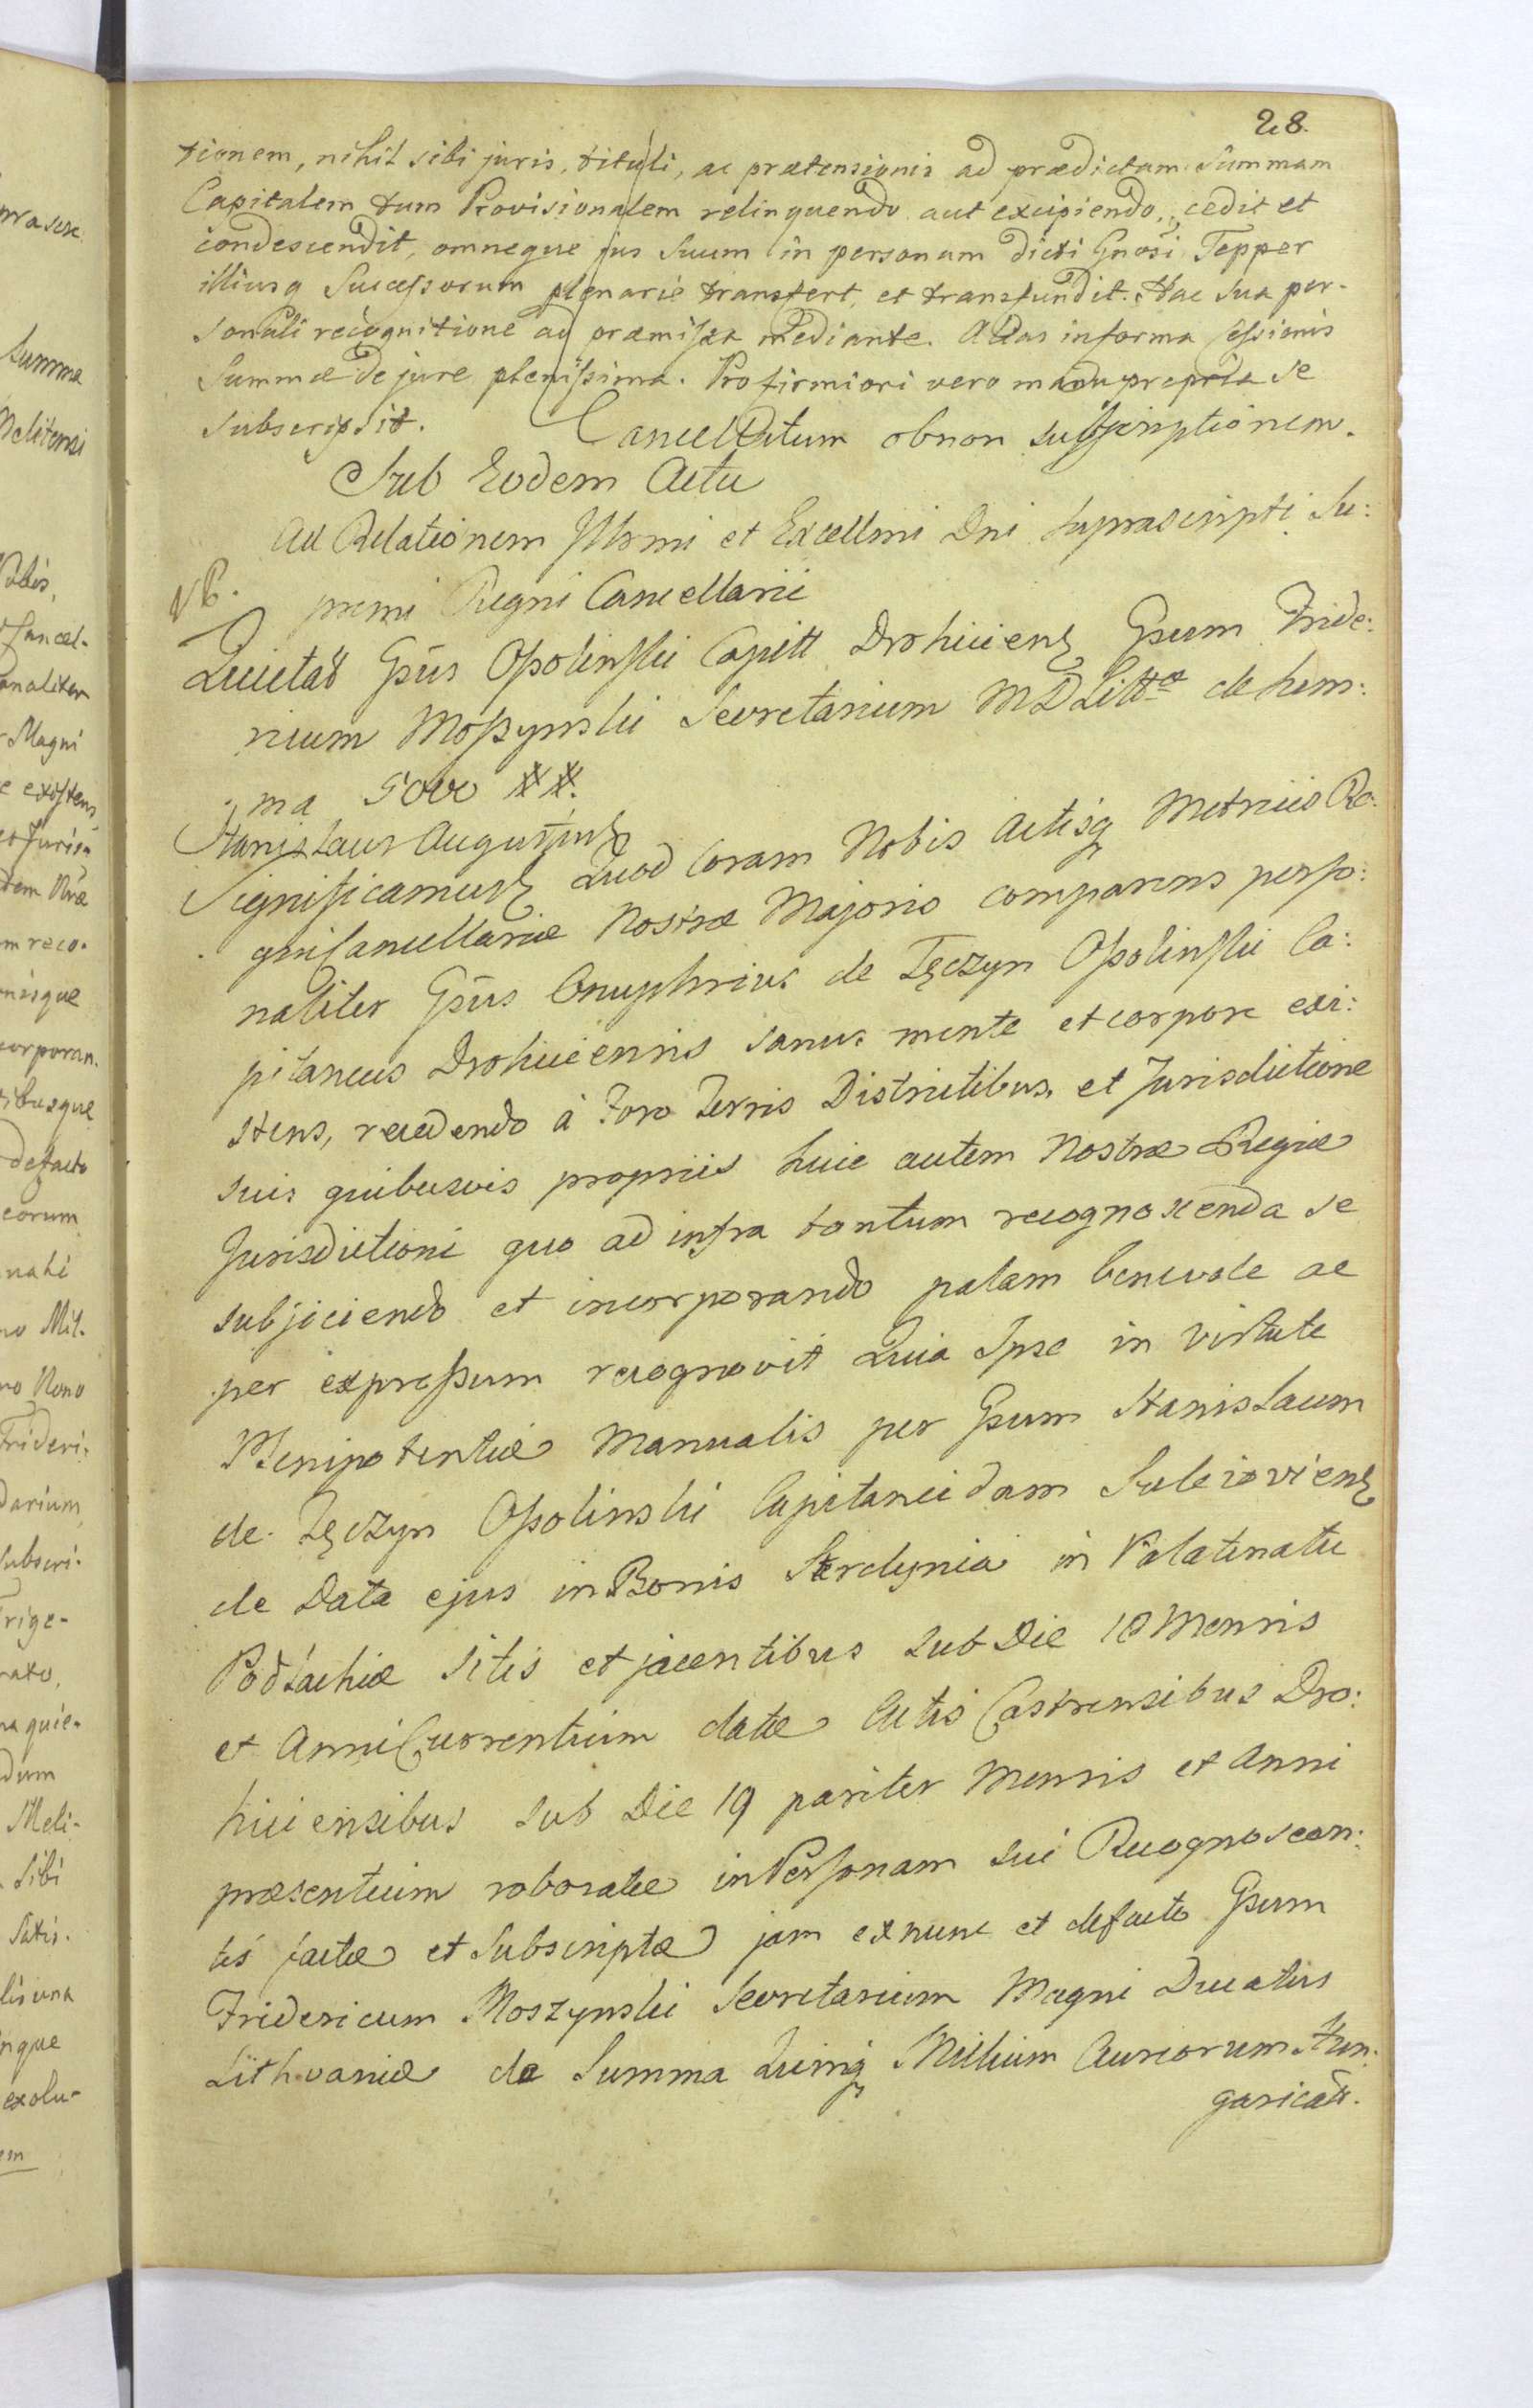 28.
tionem, nihil sibi juris, tituli, ac prætensionis ad prædictam Summam
Capitalem tum Provisionalem relinquendo aut excipiendo, cedit et
condescendit, omneque jus Suum in personam dicti Gnosi Tepper
illiusq Successorum plenarie transfert, et transfundit. Hac sua per-
sonali recognitione ad præmissa mediante. Actas in forma Cessionis
Summæ de jure plenissima. Pro firmiori vero manu propria se
subscripsit. Cancellatum ob non subscriptionem.
Sub Eodem Actu
Ad Relationem Illmi et Excellmi Dni Suprascripti Su:
premi Regni Cancellarii
NB.
Quietaŏ Gsūs Ossolinski Capitt Drohiciens Gsum Fride:
ricum Moszynski Secretarium MD Littæ de sum:
ma 5000 ##.
Stanislaus Augustus
Significamus Quod Coram Nobis Actisq Metrices Re:
gni Cancellariæ Nostræ Majoris comparens perso:
naliter Gsūs Onuphrius de Tęczyn Ossolinski Ca:
pitaneus Drohiciensis sanus mente et corpore exi:
stens, recedendo à Foro Terris Districtibus, et Jurisdictione
suis quibusvis propriis huic autem Nostræ Regiæ
Jurisdictioni quo ad infra tantum recognoscenda se
subjiciendo et incorporando palam benevole ac
per expressum recognovit Quia Ipse in virtute
Plenipotentiæ Manualis per Gsum Stanislaum
de Tęczyn Ossolinski Capitaneidam Sulejoviens
de Data ejus in Bonis Sterdynia in Palatinatu
Podlachiæ sitis et jacentibus sub Die 18 Mensis
et Anni Currentium datæ Actis Castrensibus Dro:
hiciensibus sub Die 19 pariter Mensis et Anni
præsentium roboratæ in Personam sui Recognoscen:
tis factæ et Subscriptæ jam ex nunc et defacto Gsum
Fridericum Moszynski Secretarium Magni Ducatus
Lithvaniæ de Summa Quinq Millium Aureorum Hun:
garicalt.